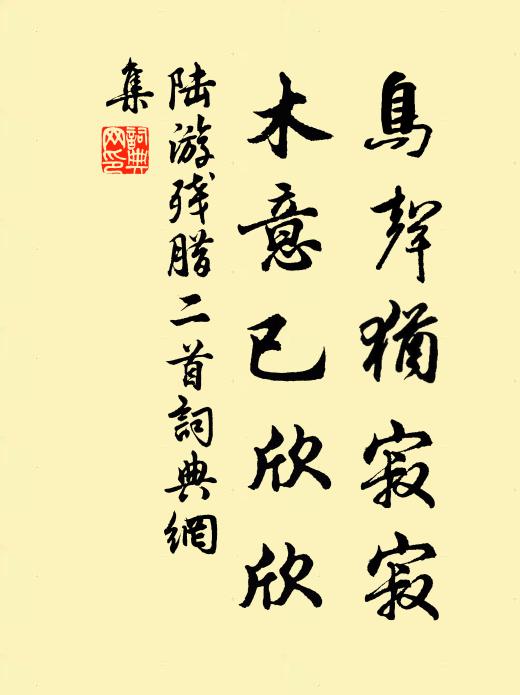 鳥聲猶寂寂
木意已欣欣
陸游残腊二首詞典網
集
詞典
网印